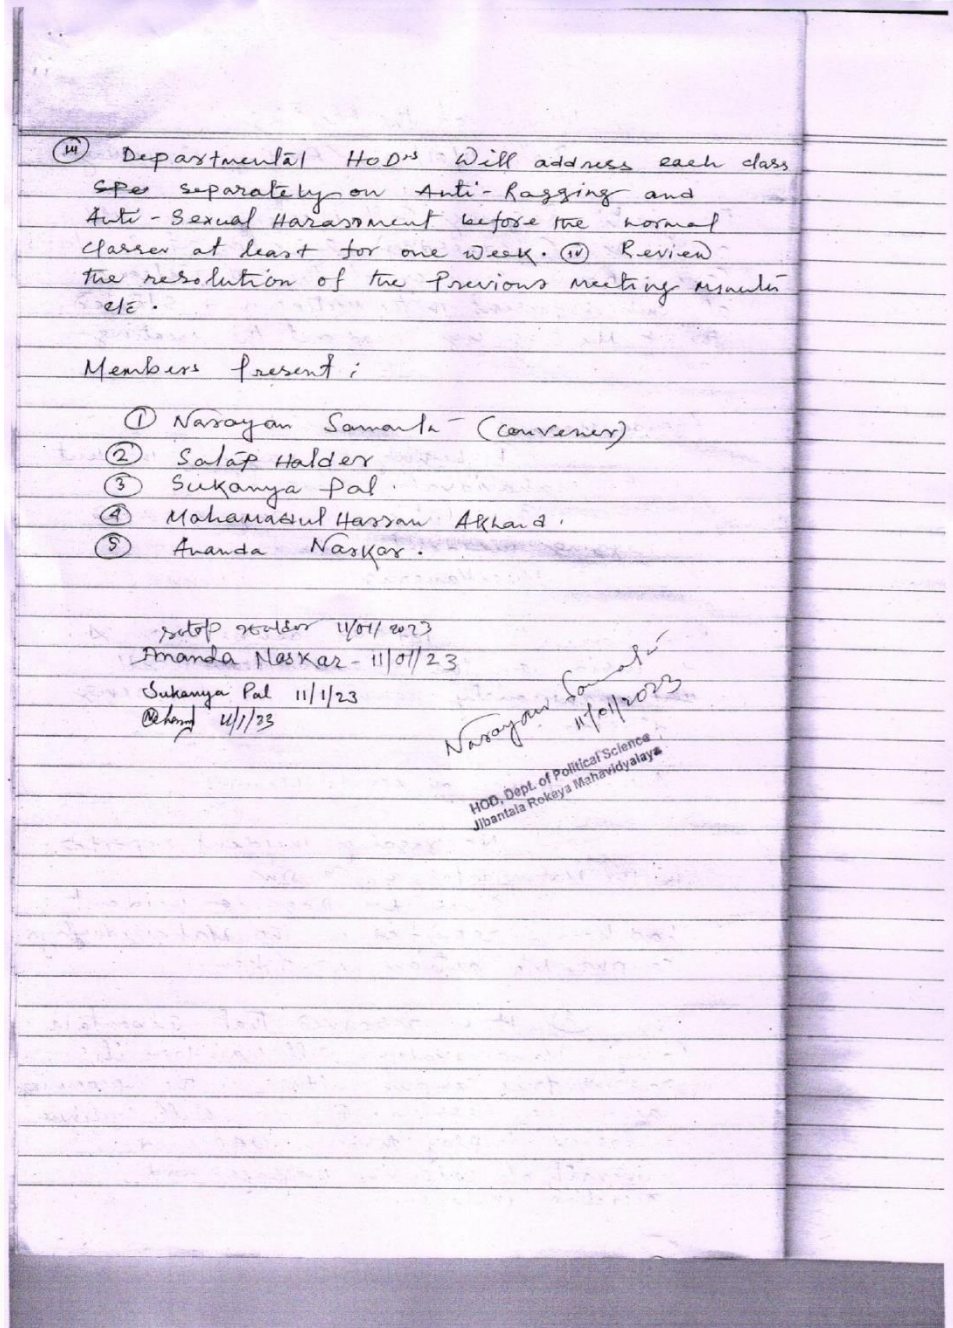 (iii) Departmental HOD's Will address each class
separately on Anti-Ragging and
Anti-Sexual Harassment before the normal
classes at least for one week. (iv) Review
the resolution of the Previous meeting minutes
etc.
Members Present:
① Narayan Samanta - (convener)
② Salap Halder
③ Sukanya Pal.
④ Mohamadul Hassan Akhand.
⑤ Ananda Naskar.
Halder 11/01/2023
Ananda Naskar - 11/01/23
Sukanya Pal 11/1/23
11/1/23
Narayan Samanta
11/01/2023
HOD, Dept. of Political Science
Jibantala Rokeya Mahavidyalaya